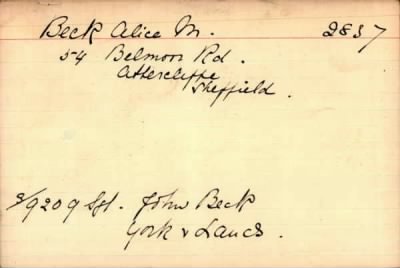 Beck Alice M. 2837
54 Belmoor Rd.
Attercliffe
Sheffield.
3/9209 Sgt. John Beck
York & Lancs.